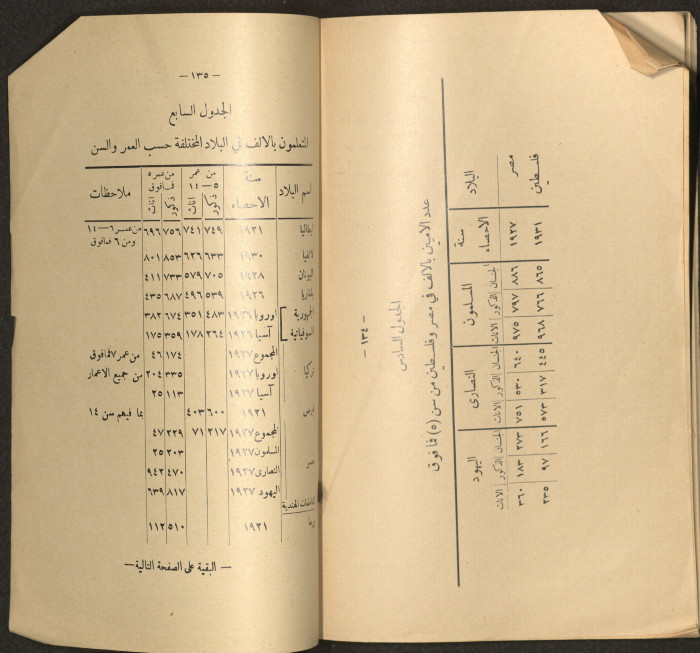 — ١٣٤ —
الجدول السادس
عدد الاميين بالالف في مصر وفلسطين من سن (٥) فما فوق
البلاد سنة الاحصاء المسلمون النصارى اليهود
الجنسان الذكور الاناث الجنسان الذكور الاناث الجنسان الذكور الاناث
مصر ١٩٢٧ ٨٨٦ ٧٩٧ ٩٧٥ ٦٤٠ ٥٣٠ ٧٥١ ٢٧٣ ١٨٣ ٣٦٠
فلسطين ١٩٣١ ٨٦٥ ٧٦٦ ٩٦٨ ٤٤٥ ٣١٧ ٥٧٣ ١٦٦ ٩٧ ٢٣٥
— ١٣٥ —
الجدول السابع
المتعلمون بالالف في البلاد المختلفة حسب العمر والسن
اسم البلاد سنة الاحصاء من عمر ٥—١٤ من عمر ٥ فما فوق ملاحظات
ذكور اناث ذكور اناث
ايطاليا ١٩٢١ ٧٤٩ ٧٤١ ٧٥٦ ٦٩٦ من عمر ٦—١٤
ومن ٦ فما فوق
لاتفيا ١٩٣٠ ٦٣٣ ٦٢٦ ٨٥٣ ٨٠١
اليونان ١٩٢٨ ٧٠٥ ٥٧٩ ٧٣٣ ٤١١
بلغاريا ١٩٢٦ ٥٣٩ ٤٩٦ ٦٨٧ ٤٣٥
الجمهورية اوروبا ١٩٢٦ ٤٨٣ ٣٥١ ٦٧٤ ٣٨٢
السوفياتية آسيا ١٩٢٦ ٢٦٤ ١٧٨ ٣٥٩ ١٧٥
المجموع ١٩٢٧ ١٧٤ ٤٦ من عمر ٧ فما فوق
تركيا اوروبا ١٩٢٧ ٣٣٥ ٢٠٤ من جميع الاعمار
آسيا ١٩٢٧ ١١٣ ٢٥
قبرص ١٩٣١ ٦٠٠ ٤٠٣ بما فيهم سن ١٤
المجموع ١٩٢٧ ٢١٧ ٧١ ٢٢٩ ٤٧
المسلمون ١٩٢٧ ٢٠٣ ٢٥
مصر النصارى ١٩٢٧ ٤٧٠ ٩٤٢
اليهود ١٩٢٧ ٨١٧ ٦٣٩
المقاطعات الهندية
برما ١٩٣١ ٥١٠ ١١٢
— البقية على الصفحة التالية —